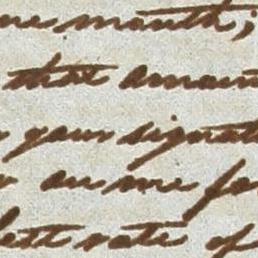 month;
that amoun
your signat
on me fo
lett rate of